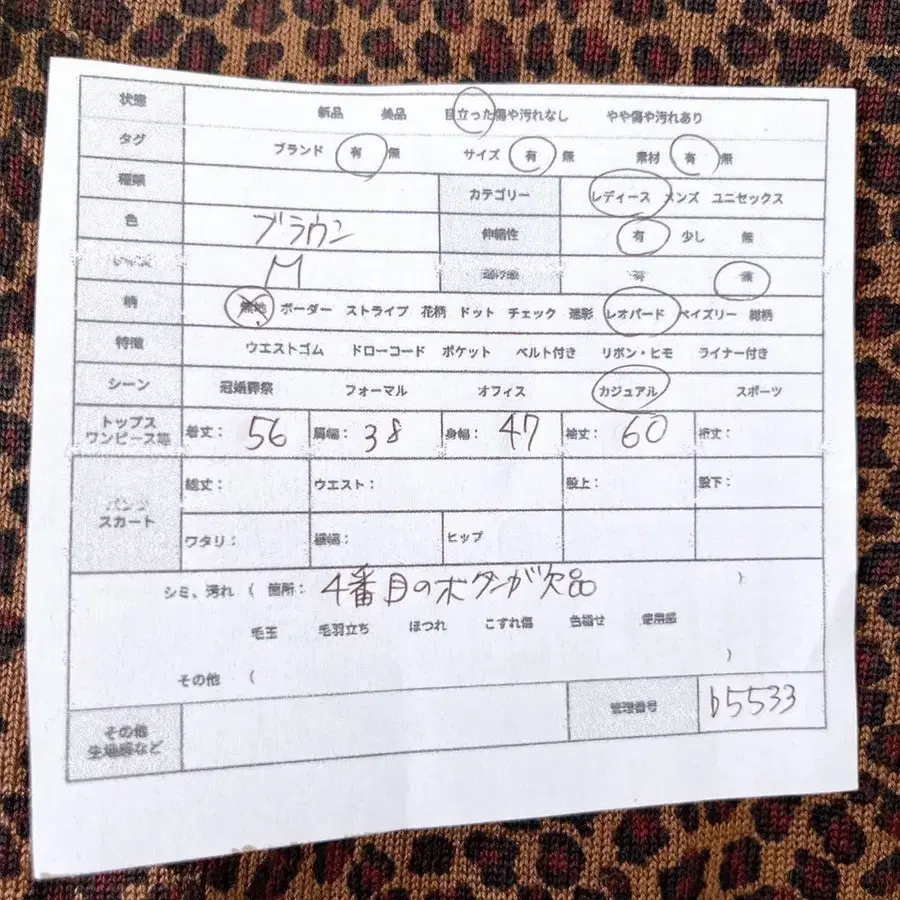 状態 新品 美品 目立った傷や汚れなし やや傷や汚れあり
タグ ブランド 有 無 サイズ 有 無 素材 有 無
種類 カテゴリー レディース メンズ ユニセックス
色 ブラウン 伸縮性 有 少し 無
サイズ M 透け感 有 無
柄 無地 ボーダー ストライプ 花柄 ドット チェック 迷彩 レオパード ペイズリー 総柄
特徴 ウエストゴム ドローコード ポケット ベルト付き リボン・ヒモ ライナー付き
シーン 冠婚葬祭 フォーマル オフィス カジュアル スポーツ
トップス
ワンピース等 着丈: 56 肩幅: 38 身幅: 47 袖丈: 60 裄丈:
パンツ
スカート
総丈: ウエスト: 股上: 股下:
ワタリ: 裾幅: ヒップ
シミ、汚れ ( 箇所: 4番目のボタンが欠品 )
毛玉 毛羽立ち ほつれ こすれ傷 色褪せ 使用感
その他 ( )
その他
生地感など
管理番号 b5533